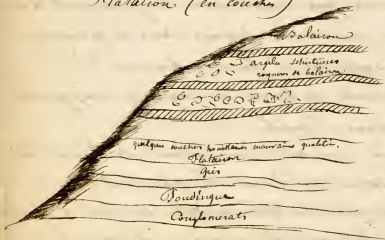 Flatairon (en couches)
Balairon
argiles schisteuses
rognons de balairon
quelques couches houillères mauvaise qualité.
Flatairon
Grès
Poudingue
Conglomerats